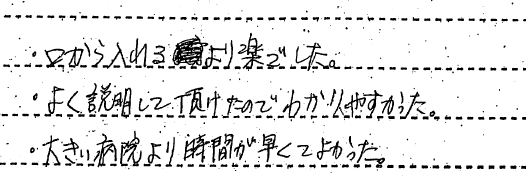 ・口から入れるより楽でした。
・よく説明して頂けたのでわかりやすかった。
・大きい病院より時間が早くてよかった。